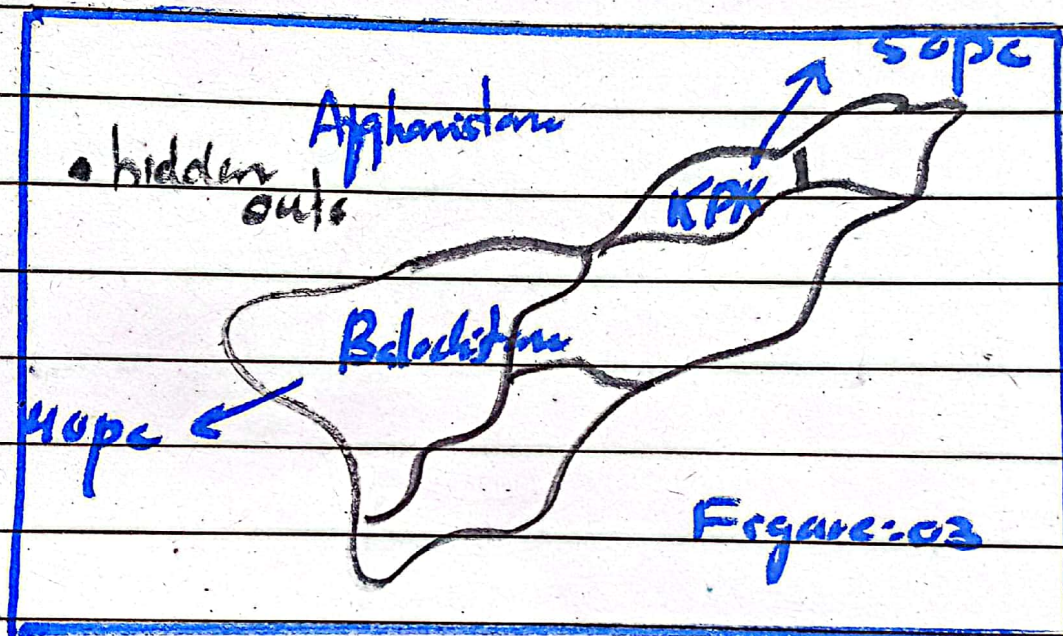 50pc
Afghanistan
• hidden
outs
KPK
Balochistan
40pc
Figure:03